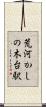 荒河かし
の木台駅